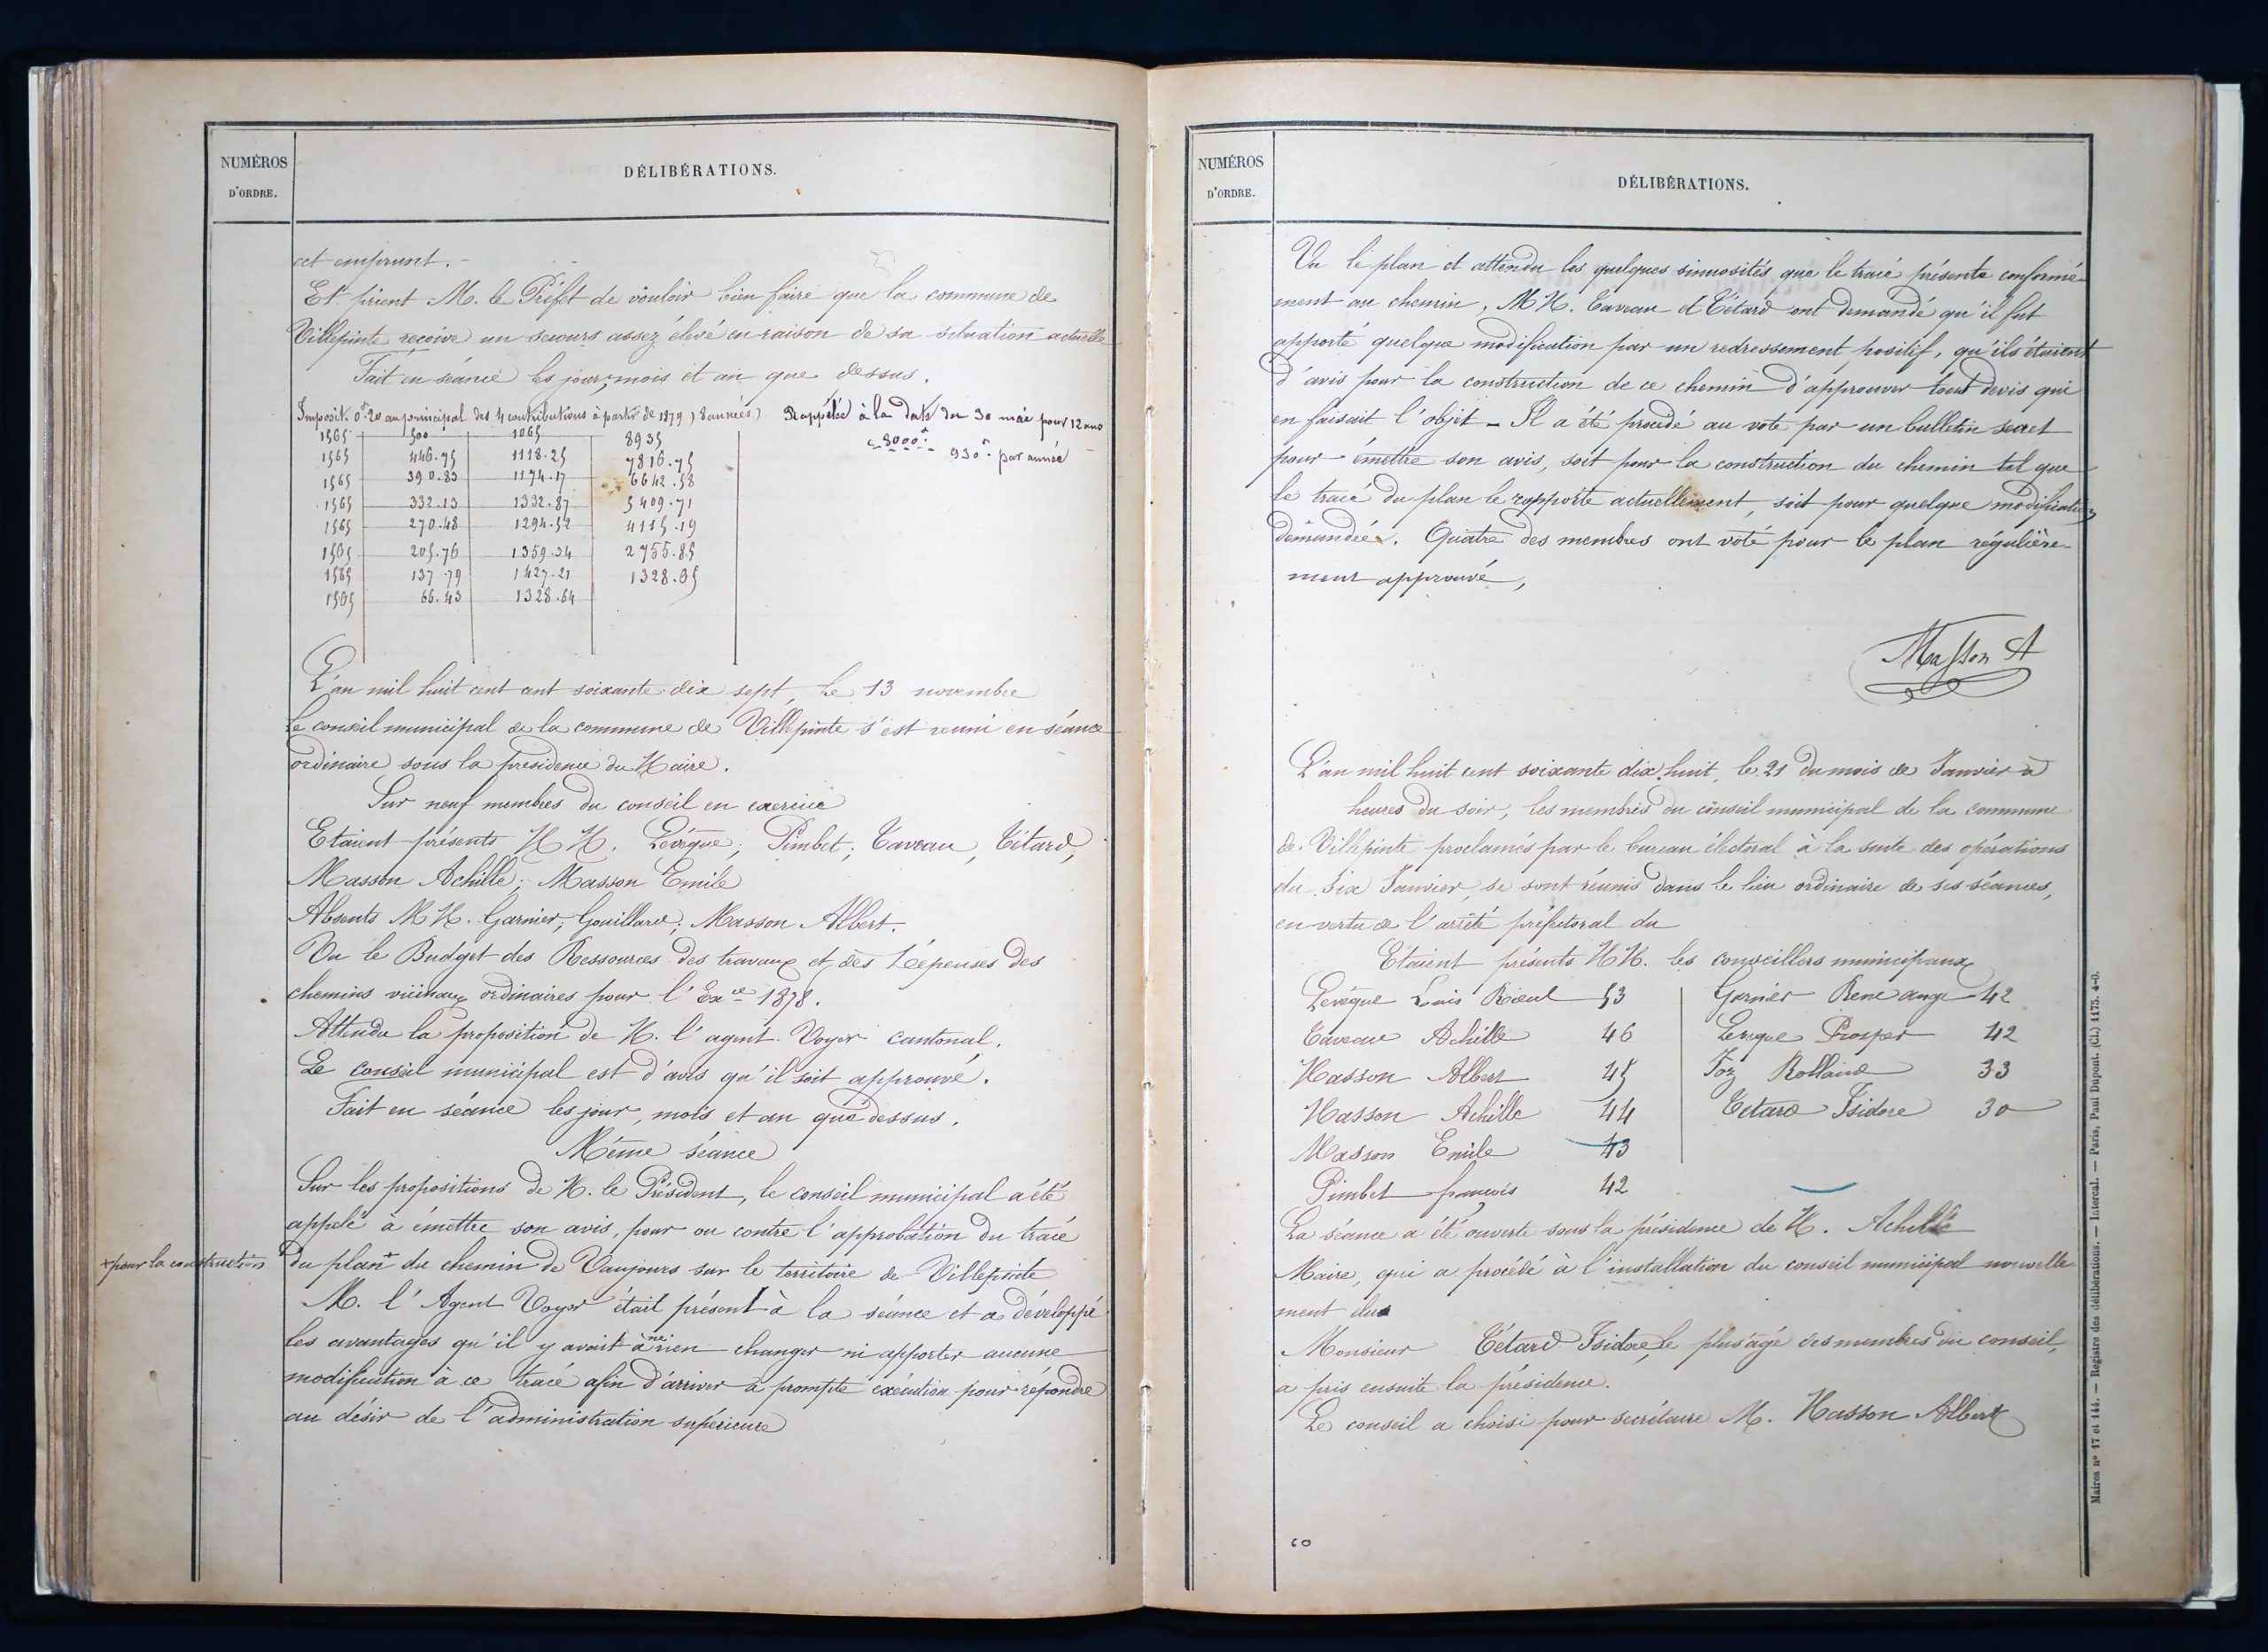 NUMÉROS
D'ORDRE.
DÉLIBÉRATIONS.
cet emprunt.
Et prient M. le Préfet de vouloir bien faire que la commune de
Villepinte reçoive un secours assez élevé en raison de sa situation actuelle
Fait en séance les jour, mois et an que dessus.
Imposit. 0fr20 au principal des 4 contributions à partir de 1879 ) 8 années ) Rappelée à la date du 30 mai pour 12 ans
8000fr
930fr par année
1565 500 1065 8935
1565 446.75 1118.25 7816.75
1565 390.83 1174.17 6642.58
1565 332.13 1332.87 5409.71
1565 270.48 1294.52 4115.19
1565 205.76 1359.34 2755.85
1565 137.79 1427.21 1328.65
1565 66.43 1328.64
L'an mil huit cent cent soixante dix sept, le 13 novembre
Le conseil municipal de la commune de Villepinte s'est reuni en séance
ordinaire sous la présidence du Maire.
Sur neuf membres du conseil en exercice
Etaient présents MM. Levêque; Pimbet; Caveau, Tétard;
Masson Achille; Masson Emile
Absents MM. Garnier; Gouillard; Masson Albert.
Vu le Budget des Ressources des travaux et des Dépenses des
chemins vicinaux ordinaires pour l'Exce 1878.
Attendu la proposition de M. l'agent Voyer cantonal.
Le conseil municipal est d'avis qu'il soit approuvé.
Fait en séance les jour, mois et an que dessus.
Même séance
Sur les propositions de M. le Président, le conseil municipal a été
appelé à émettre son avis, pour ou contre l'approbation du tracé
+pour la construction
du plan + du chemin de Vaujours sur le territoire de Villepinte
M. l'Agent Voyer était présent à la séance et a développé
les avantages qu'il y avait à ne rien changer ni apporter aucune
modification à ce tracé afin d'arriver à prompte exécution pour répondre
au désir de l'administration supérieure
NUMÉROS
D'ORDRE.
DÉLIBÉRATIONS.
Vu le plan et attendu les quelques sinuosités que le tracé présente conformé-
ment au chemin, MM. Caveau et Tétard ont demandé qu'il fut
apporté quelque modification par un redressement positif, qu'ils étaient
d'avis pour la construction de ce chemin d'approuver tout devis qui
en faisait l'objet - Il a été procédé au vote par un bulletin secret
pour émettre son avis, soit pour la construction du chemin tel que
le tracé du plan le rapporte actuellement, soit pour quelque modification
demandée. Quatre des membres ont voté pour le plan régulière-
ment approuvé,
Masson A
L'an mil huit cent soixante dix huit, le 21 du mois de Janvier à
heures du soir, les membres du conseil municipal de la commune
de Villepinte proclamés par le bureau électoral à la suite des opérations
du six Janvier, se sont réunis dans le lieu ordinaire de ses séances,
en vertu de l'arrêté préfectoral du
Etaient présents MM. les conseillers municipaux
Levêque Louis Rieul 53 Garnier René ange 42
Caveau Achille 46 Leveque Prosper 42
Masson Albert 45 Rolland 33
Masson Achille 44 Tetard Isidore 30
Masson Emile 43
Pimbet françois 42
La séance a été ouverte sous la présidence de M. Achille
Maire, qui a procédé à l'installation du conseil municipal nouvelle
ment elu
Monsieur Tétard Isidore, le plus âgé des membres du conseil,
a pris ensuite la présidence.
Le conseil a choisi pour secrétaire M. Masson Albert
60
Maires nos 17 et 144. — Registre des délibérations. — Intercal. — Paris, Paul Dupont. (Cl.) 1175. 4-0.